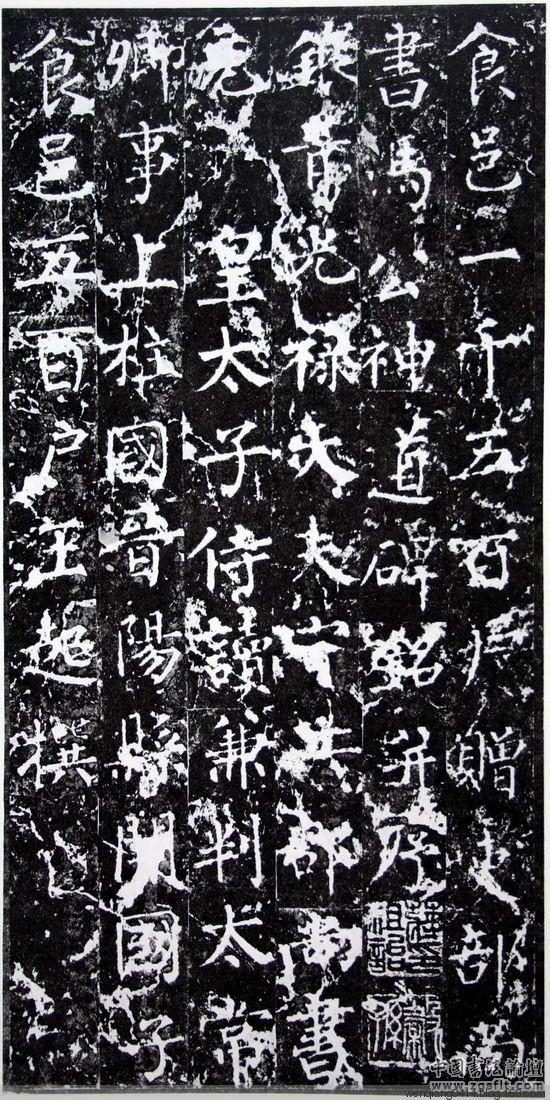 食邑一千五百戶贈吏部尚
書馮公神道碑銘并序
銀青光祿大夫守兵部尚書
充皇太子侍讀兼判太常
卿事上柱國晉陽縣開國子
食邑五百戶王起撰
中国書法論壇
www.zgsflt.com